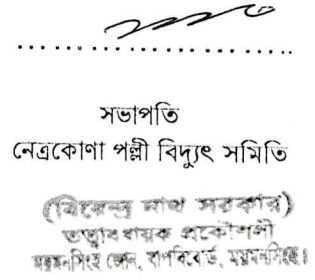 সভাপতি
নেত্রকোণা পল্লী বিদ্যুৎ সমিতি
নাথ সরকার)
তত্ত্বাবধায়ক প্রকৌশলী
ময়মনসিংহ জোন, বাপবিবোর্ড, ময়মনসিংহ।